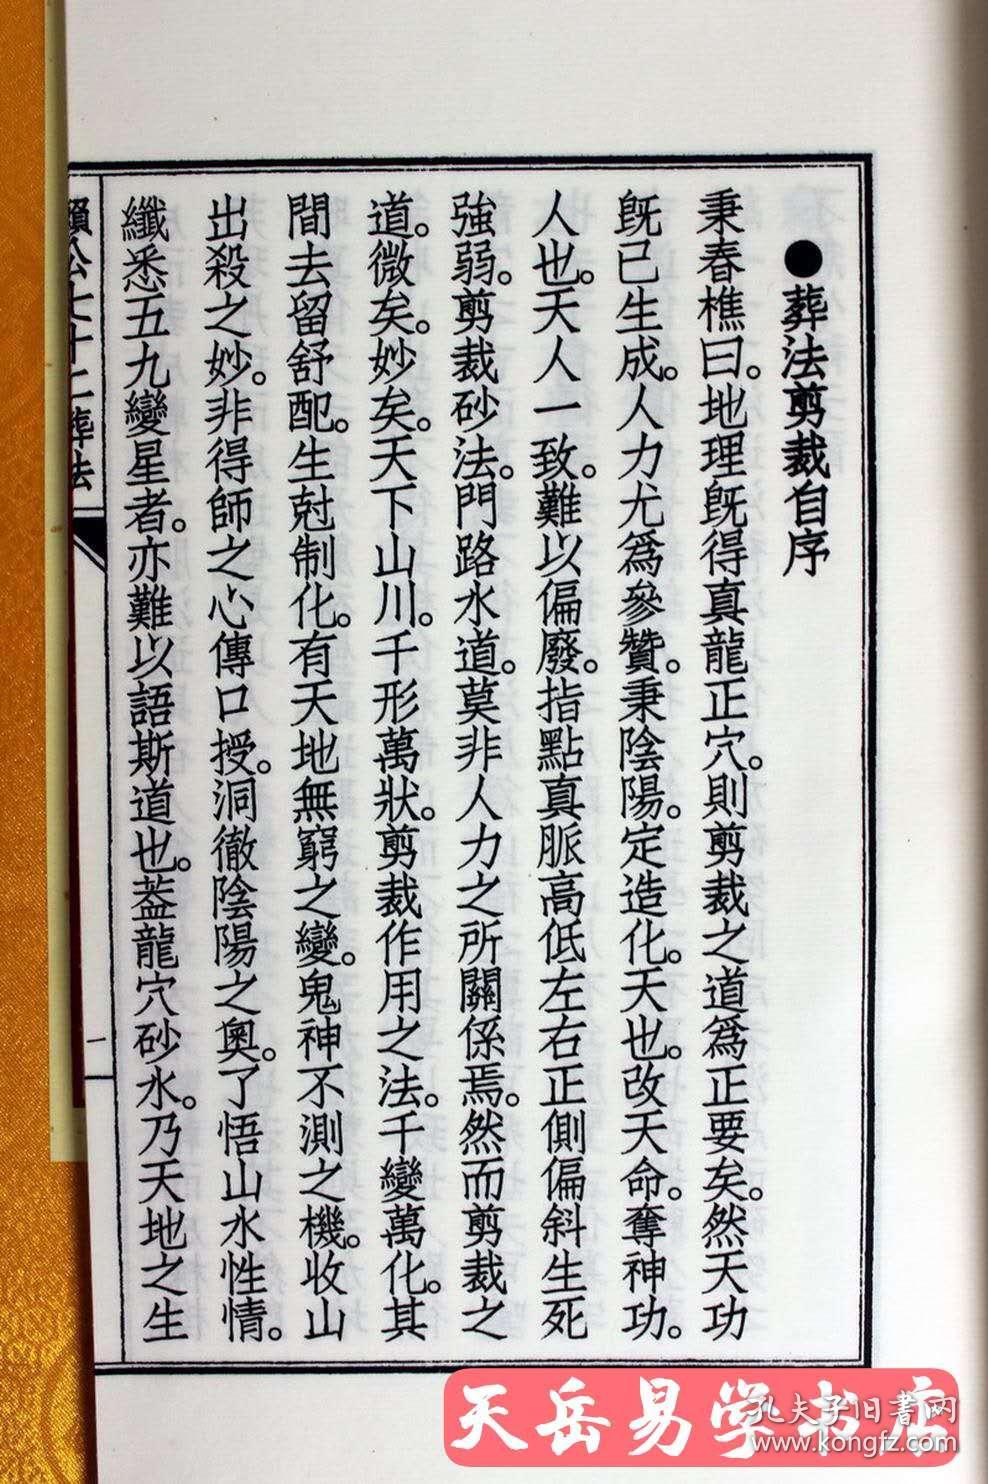 ●葬法剪裁自序
秉春樵曰。地理旣得真龍正穴。則剪裁之道爲正要矣。然天功
旣已生成。人力尤爲參贊。秉陰陽。定造化。天也。改天命。奪神功。
人也。天人一致。難以偏廢。指點真脈高低左右正側偏斜生死
強弱。剪裁砂法。門路水道。莫非人力之所關係焉。然而剪裁之
道。微矣。妙矣。天下山川。千形萬狀。剪裁作用之法。千變萬化。其
間去留舒配。生尅制化。有天地無窮之變。鬼神不測之機。收山
出殺之妙。非得師之心傳口授。洞徹陰陽之奧。了悟山水性情。
纖悉五九變星者。亦難以語斯道也。葢龍穴砂水。乃天地之生
賴公七十二葬法
一
天岳易学书店
孔夫子旧書网
www.kongfz.com